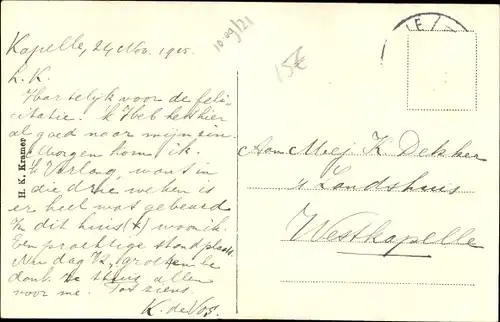 Kapelle, 24 Nov. 1905.
L. K.
Hartelijk voor de feli-
citatie. 'k Heb het hier
al goed naar mijn zin.
Morgen kom ik.
'k Verlang, want in
die drie weken is
er heel wat gebeurd
In dit huis (x) woon ik.
Een prachtige standplaats.
Nu dag K, groeten
thuis allen
voor me. Tot ziens.
K. de Vos.
H. K. Kramer
10 09/21
15€
Aan Mej K Dekker
's Landshuis
Westkapelle